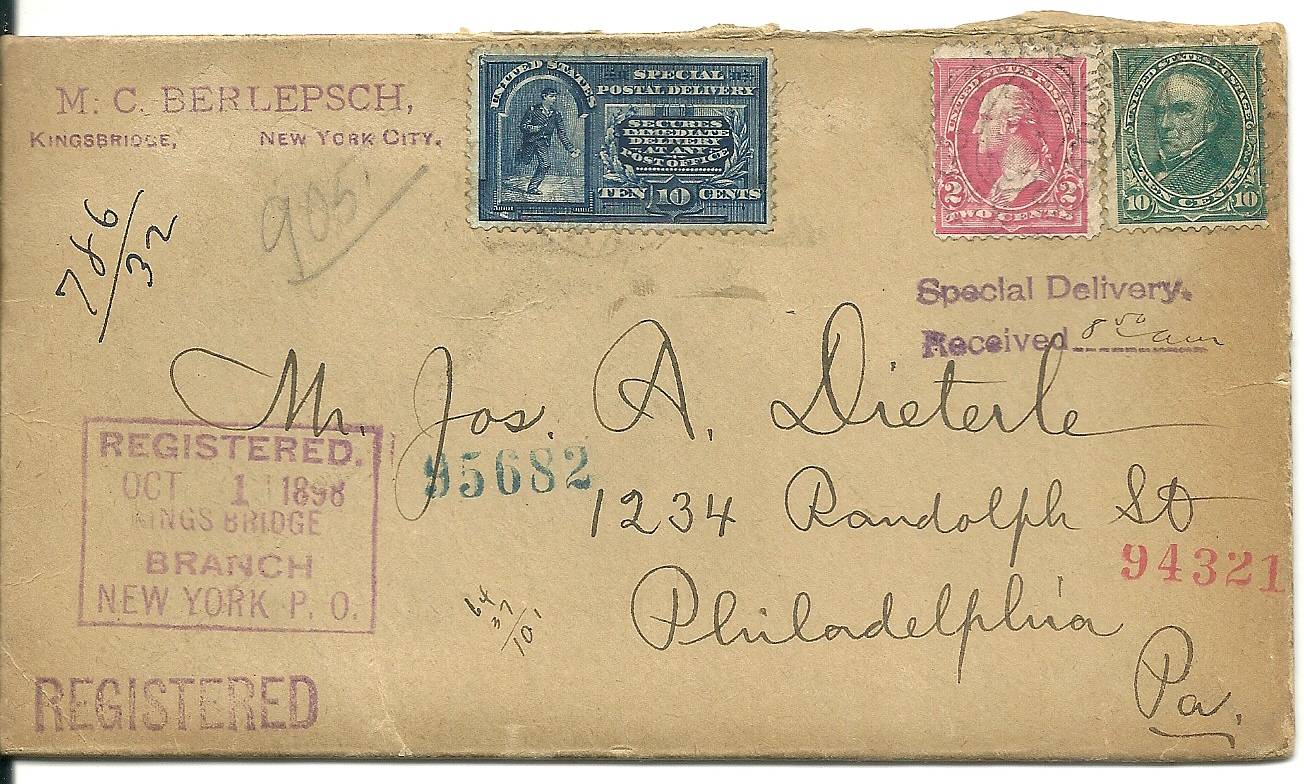 M. C. BERLEPSCH,
KINGSBRIDGE, NEW YORK CITY.
786/32
905
UNITED STATES
SPECIAL
POSTAL DELIVERY
SECURES
IMMEDIATE
DELIVERY
AT ANY
POST OFFICE
TEN 10 CENTS
UNITED STATES POSTAGE
2 2
TWO CENTS
UNITED STATES POSTAGE
10 TEN CENTS 10
Special Delivery.
Received 8 50 am
Mr. Jos. A. Dieterle
1234 Randolph St
Philadelphia
Pa.
REGISTERED.
OCT 1 1898
KINGSBRIDGE
BRANCH
NEW YORK P. O.
95682
94321
64
37
101
REGISTERED